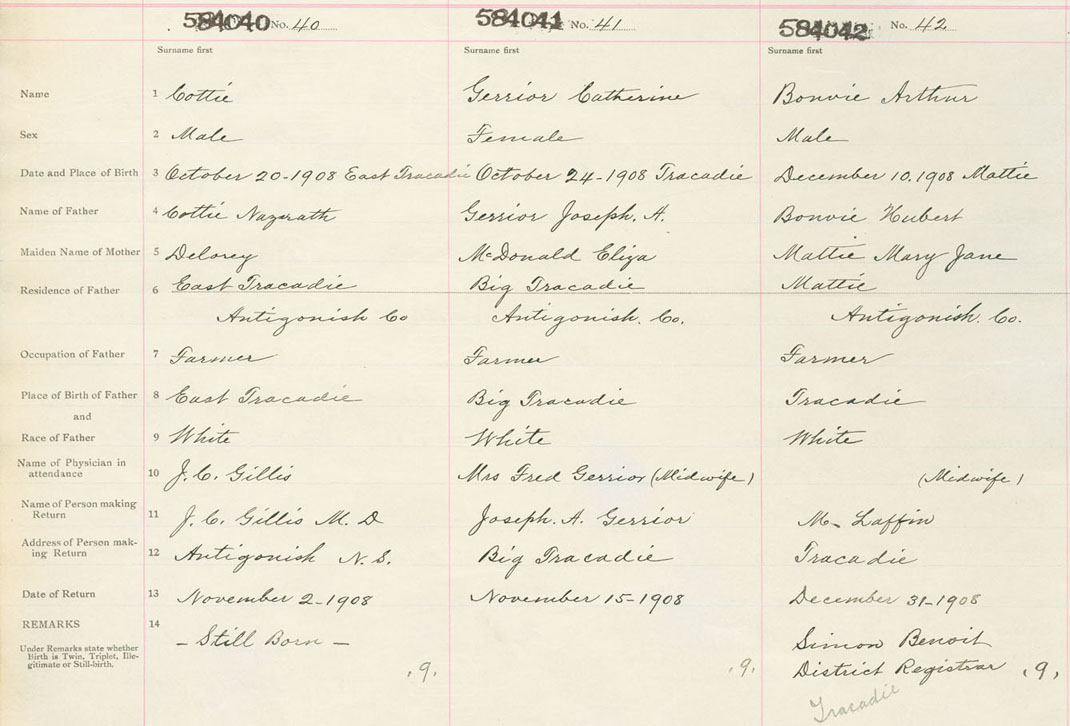 584040 No. 40 584041 No. 41 584042 No. 42
Surname first Surname first Surname first
Name 1 Cottie Gerrior Catherine Bonvie Arthur
Sex 2 Male Female Male
Date and Place of Birth 3 October 20-1908 East Tracadie October 24-1908 Tracadie December 10, 1908 Mattie
Name of Father 4 Cottie Nazarath Gerrior Joseph. A. Bonvie Hubert
Maiden Name of Mother 5 Delorey McDonald Eliza Mattie Mary Jane
Residence of Father 6 East Tracadie Big Tracadie Mattie
Antigonish Co Antigonish. Co. Antigonish. Co.
Occupation of Father 7 Farmer Farmer Farmer
Place of Birth of Father 8 East Tracadie Big Tracadie Tracadie
and
Race of Father 9 White White White
Name of Physician in
attendance 10 J. C. Gillis Mrs Fred Gerrior (Midwife) (Midwife)
Name of Person making
Return 11 J. C. Gillis M. D Joseph. A. Gerrior M- Laffin
Address of Person mak-
ing Return 12 Antigonish N. S. Big Tracadie Tracadie
Date of Return 13 November 2-1908 November 15-1908 December 31-1908
REMARKS 14 - Still Born - Simon Benoit
Under Remarks state whether
Birth is Twin, Triplet, Ille-
gitimate or Still-birth.
,9, ,9, District Registrar ,9,
Tracadie